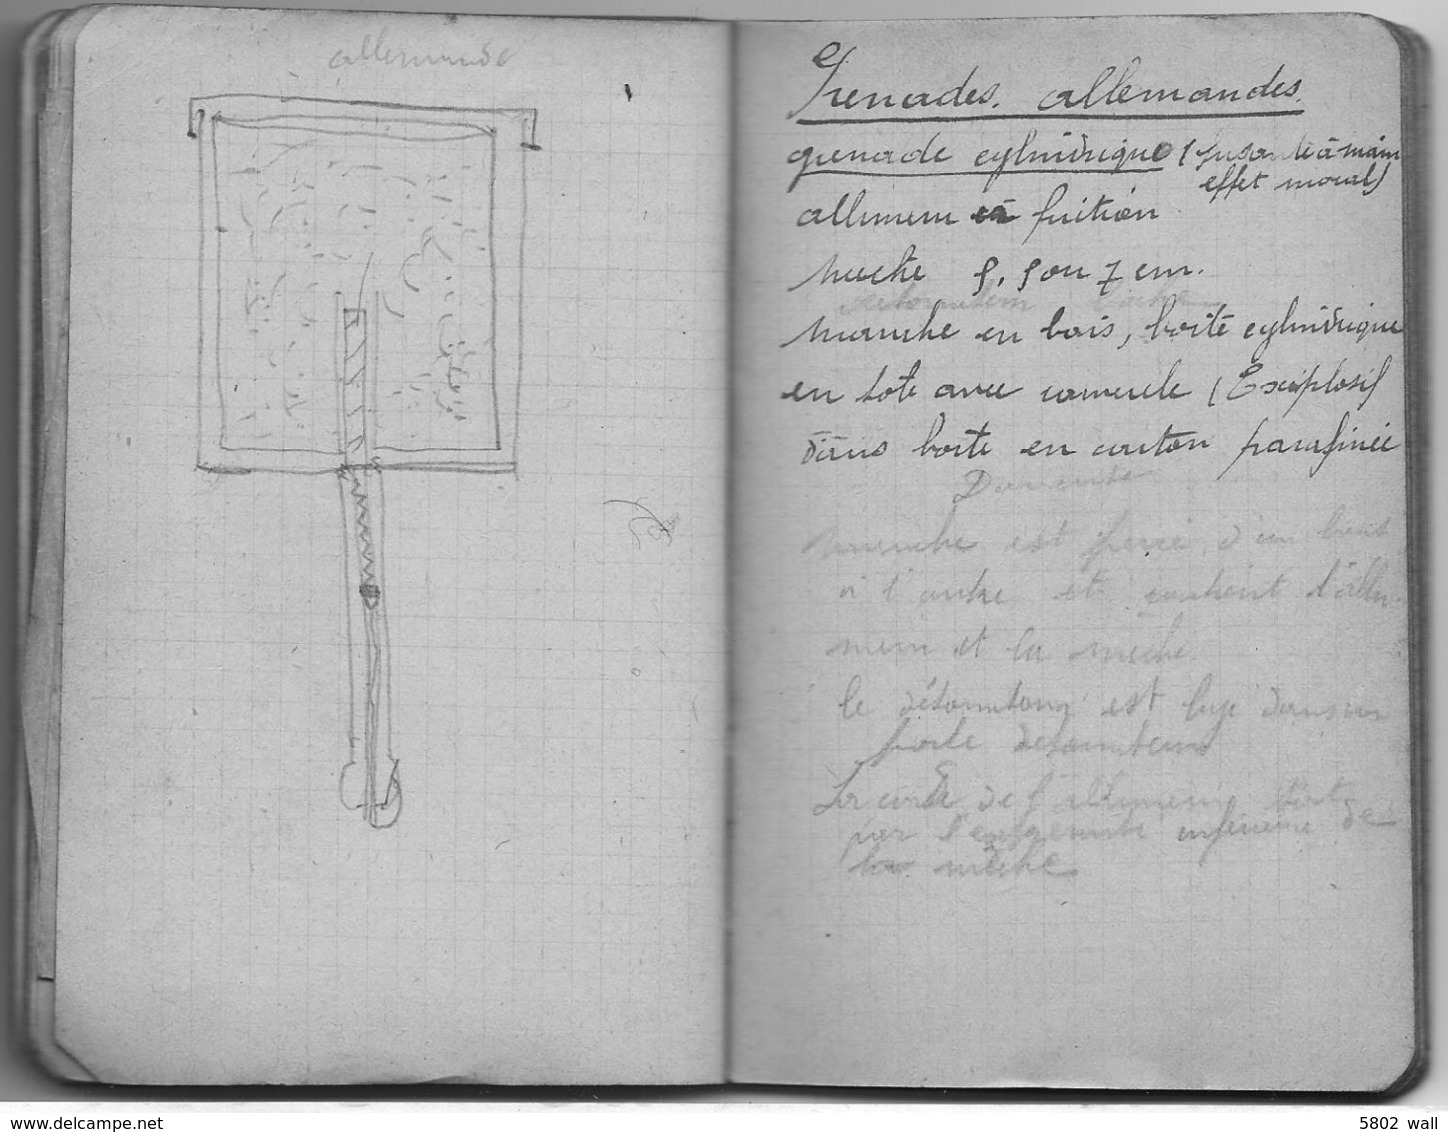 allemande
Grenades. allemandes.
grenade cylindrique (fusante à main
effet moral)
allumeur à friction
meche 5, 5 ou 7 cm.
manche en bois, boîte cylindrique
en tole avec couvercle (Explosif
dans boite en carton parafinée
manche est percé d'un bout
à l'autre et contient l'allu-
meur et la mèche
le détonateur est logé dans un
porte detonateur
La corde de l'allumeur sort
par l'extremité inférieure de
la mèche
www.delcampe.net
5802 wall